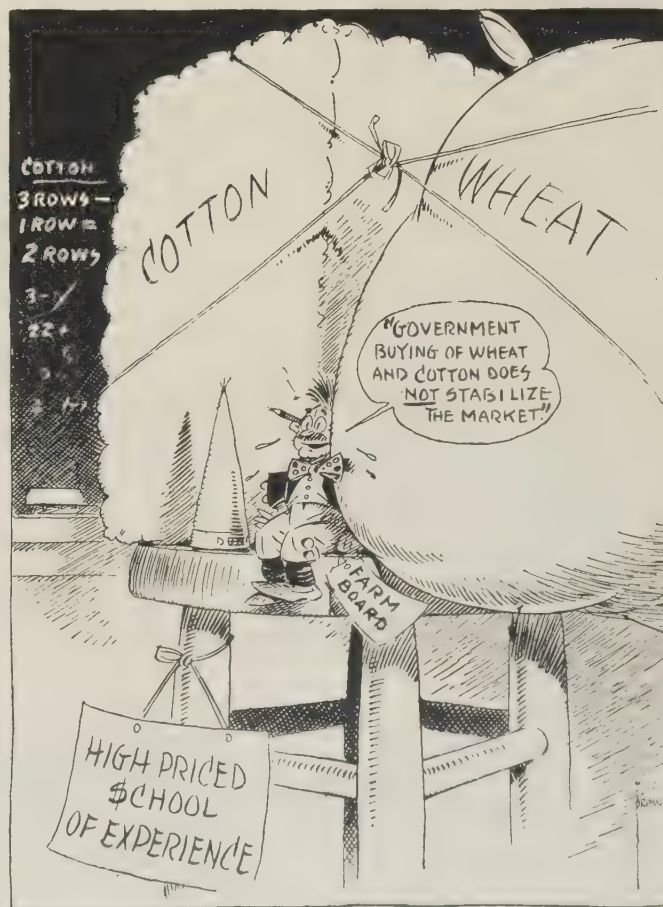 COTTON
3 ROWS —
1 ROW =
2 ROWS
COTTON
WHEAT
"GOVERNMENT
BUYING OF WHEAT
AND COTTON DOES
NOT STABILIZE
THE MARKET."
FARM
BOARD
HIGH PRICED
$CHOOL
OF EXPERIENCE